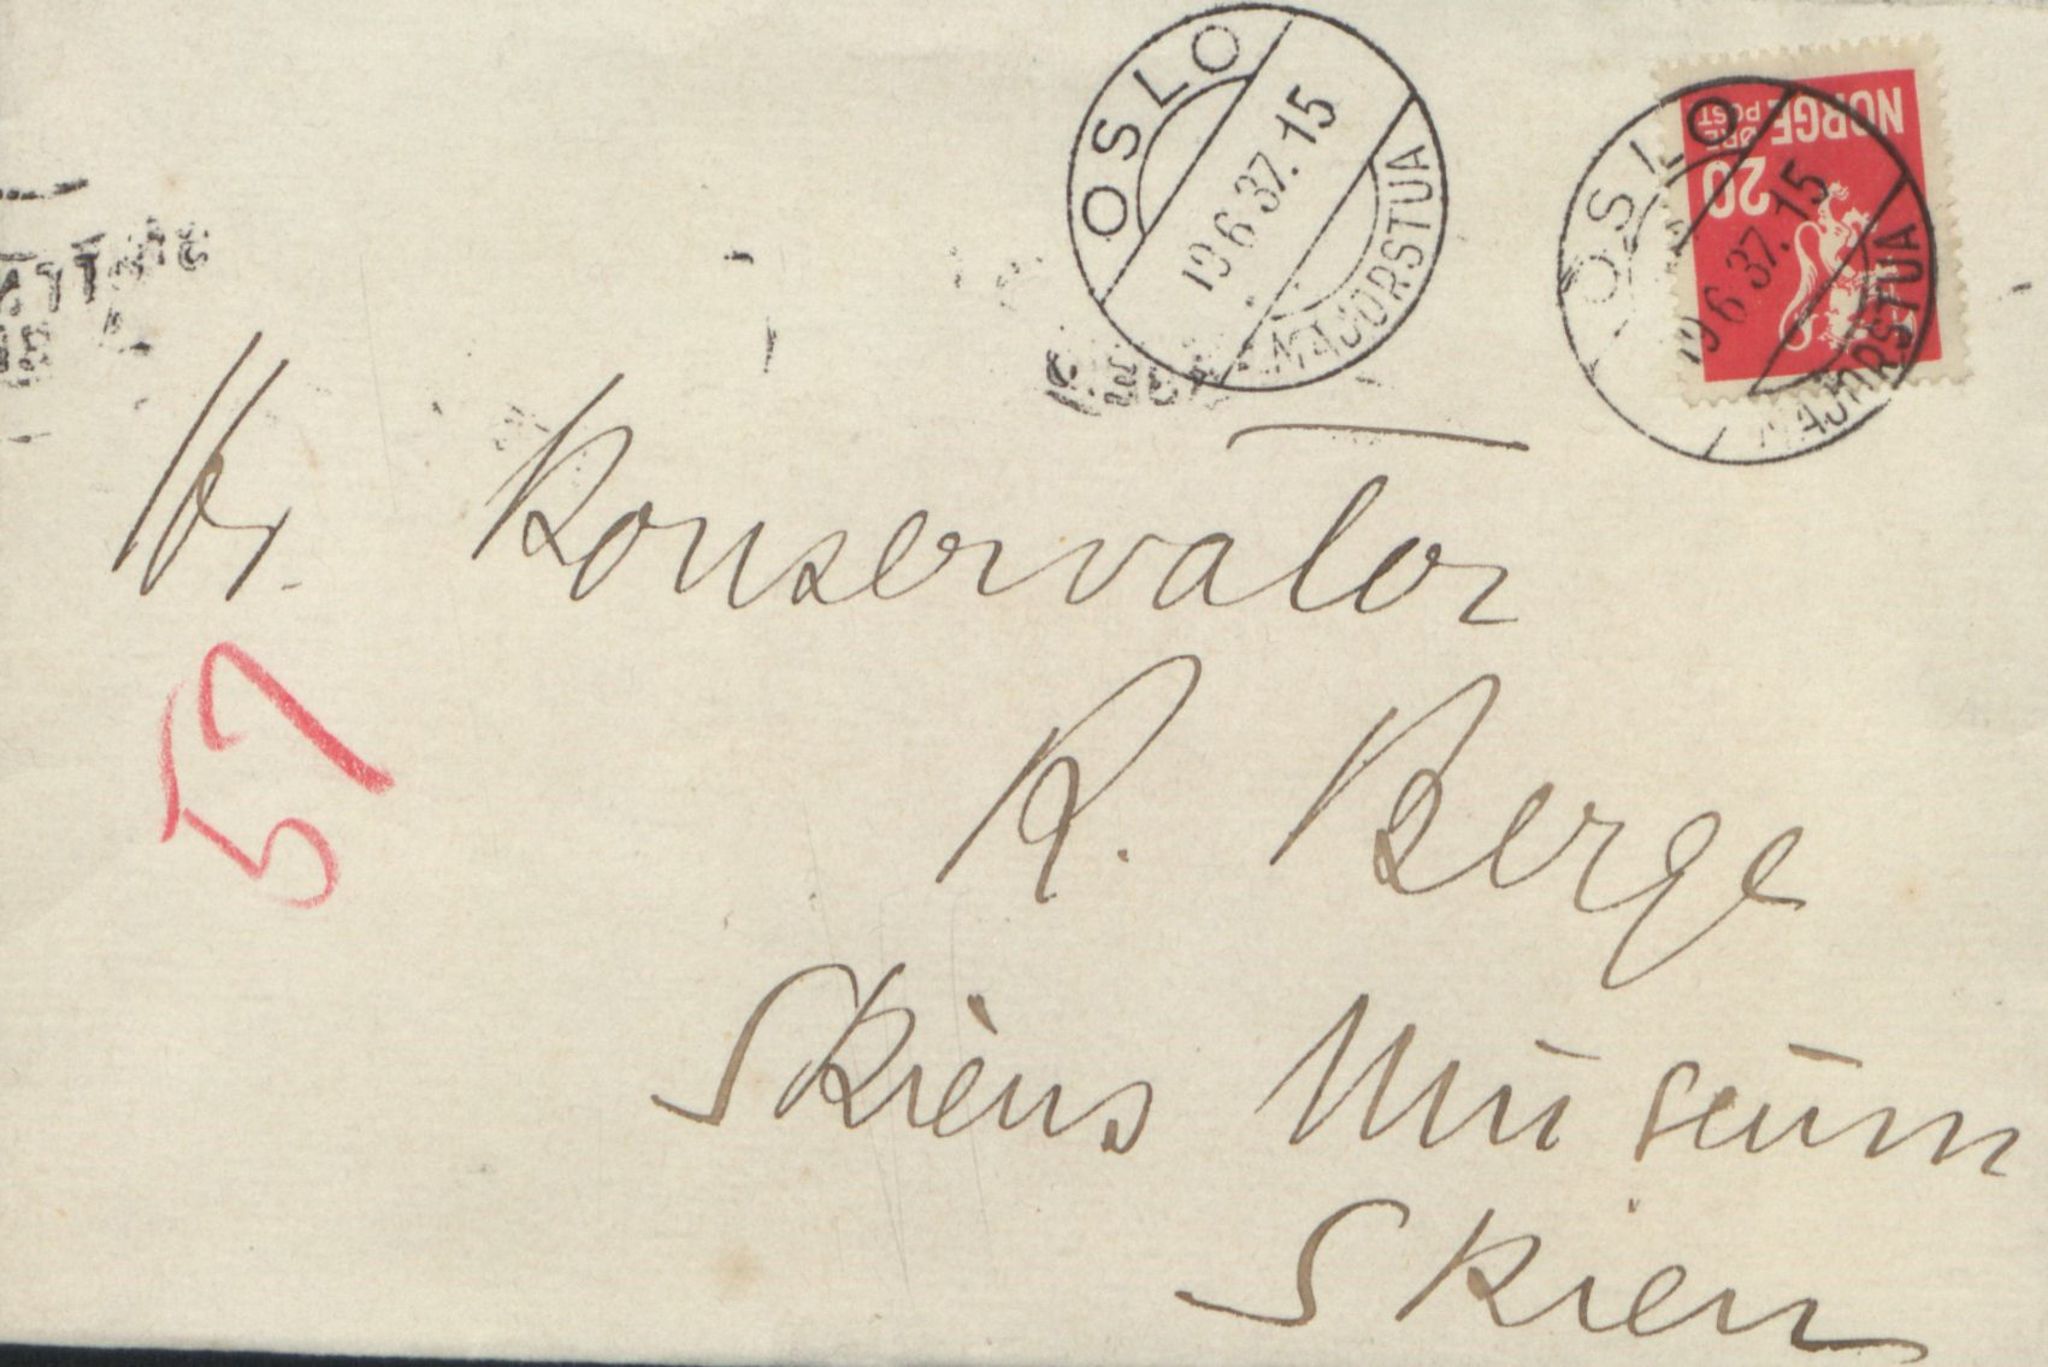 OSLO
19 6 37. 15
MAJORSTUA
NORGE
POST
20 ØRE
OSLO
19 6 37. 15
MAJORSTUA
Hr. Konservator
R. Berge
Skiens Museum
Skien
57